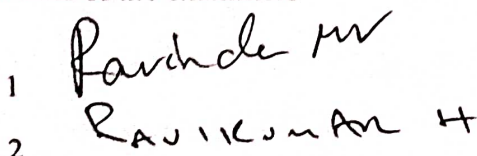 1 Ravinda MV
2 RAVIKUMAR H